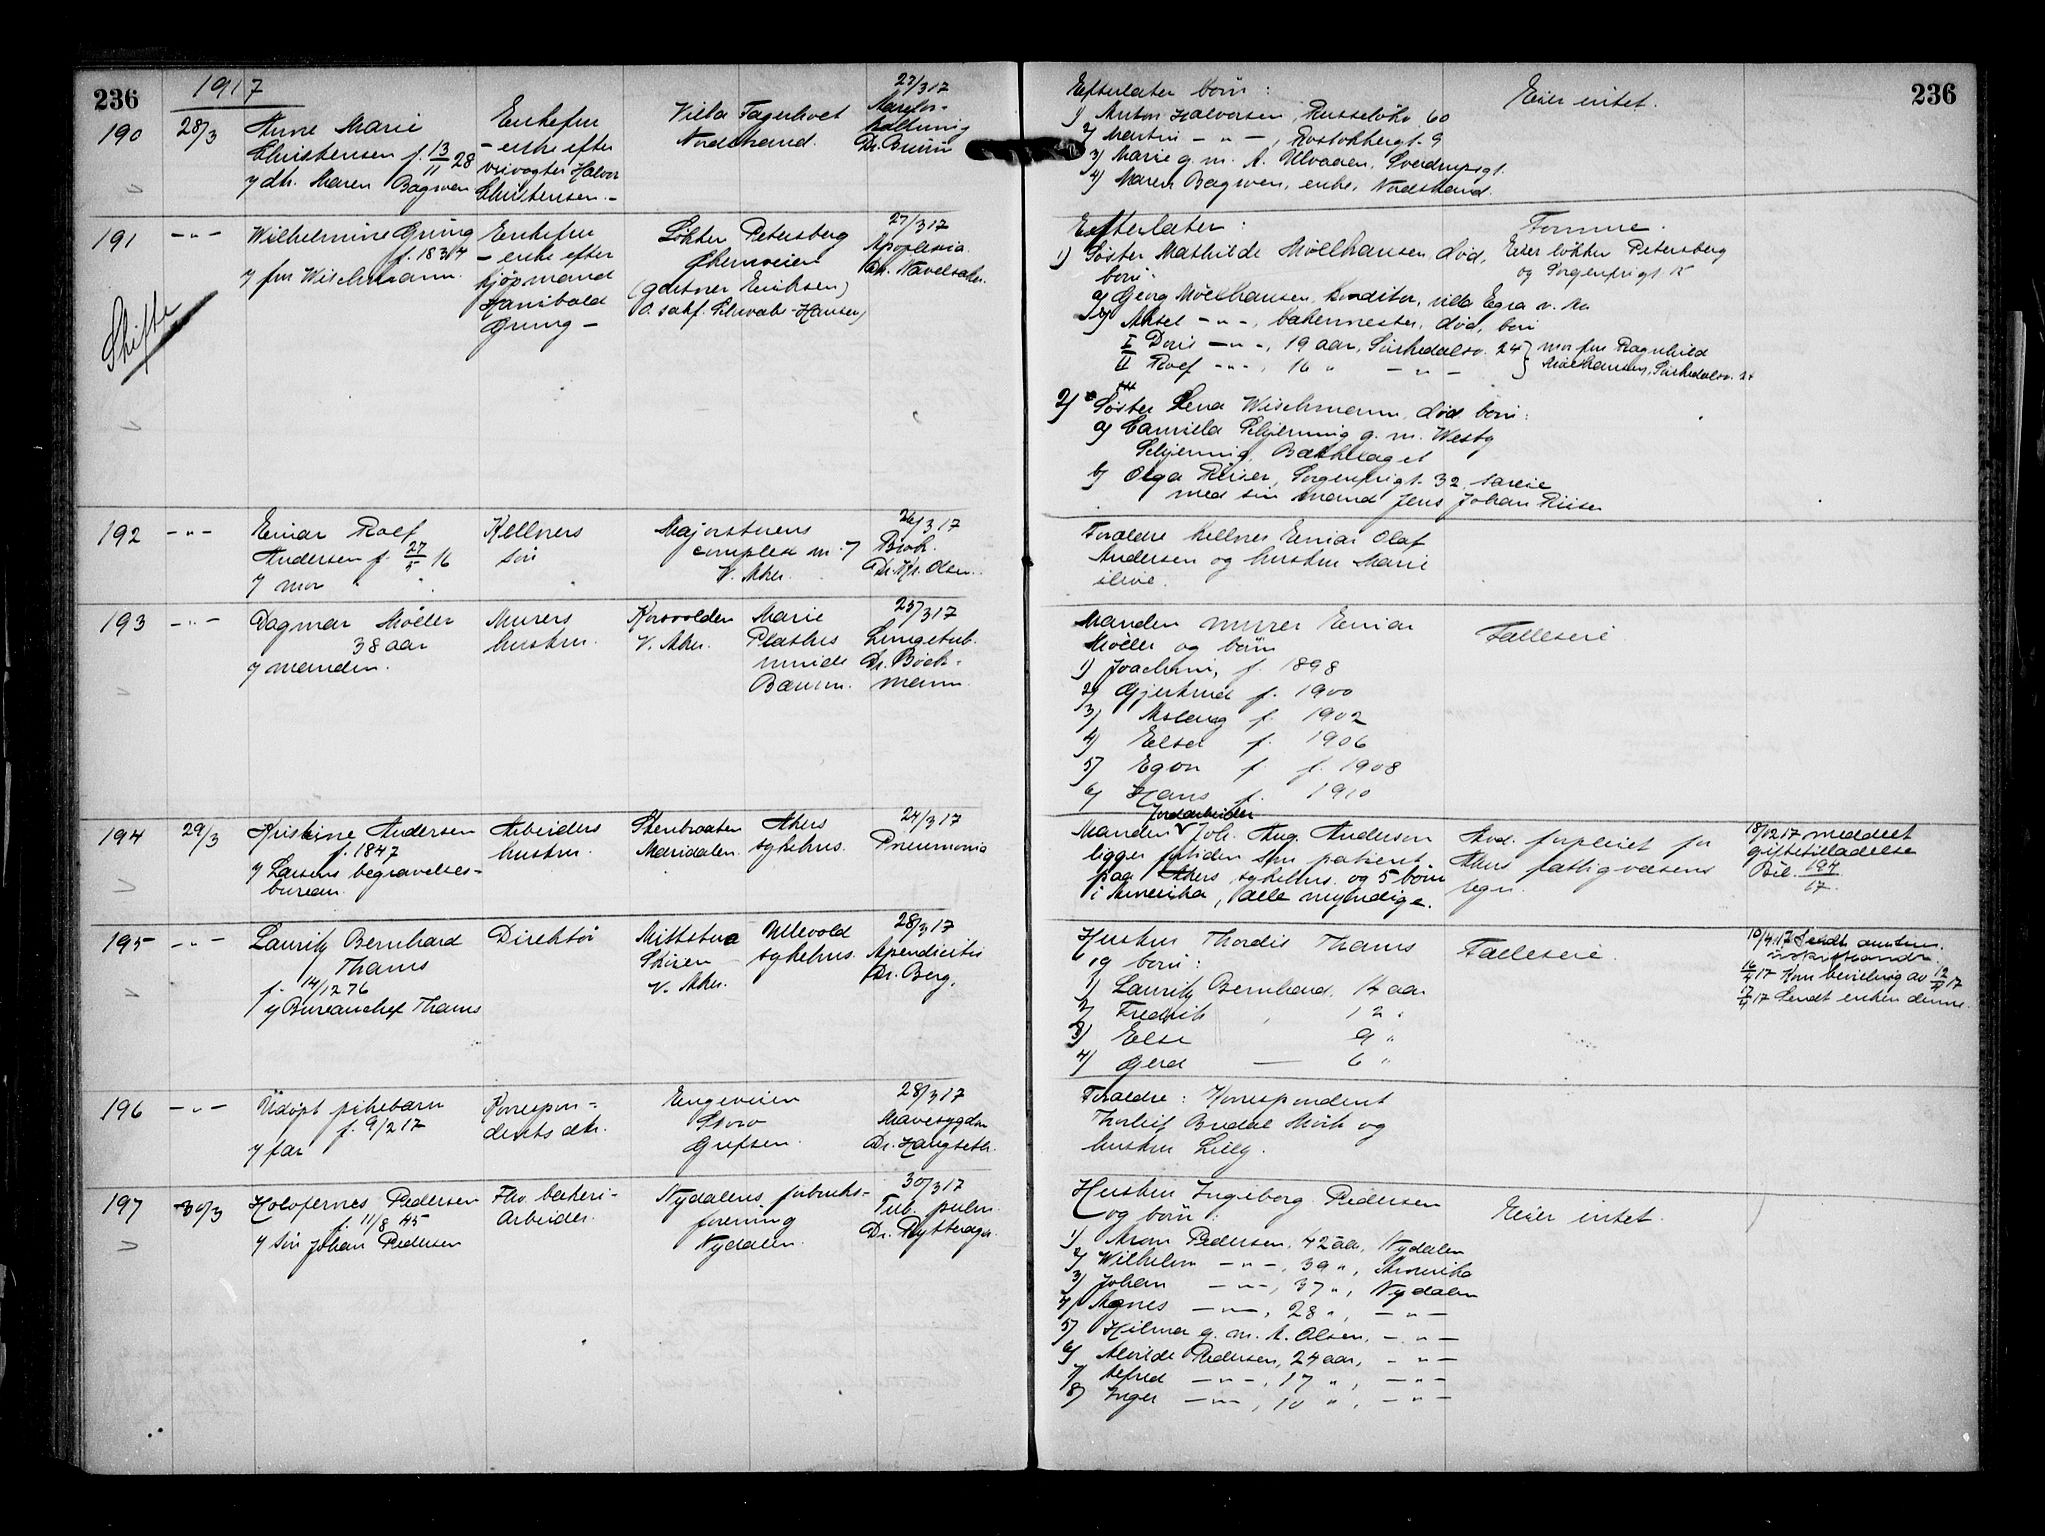 236
1917
190
28/3
Anne Marie
Christensen f. 13/11 28
v/ dtr. Maren Bagsven
Enkefru
- enke efter
veivogter Halvor
Christensen. -
Villa Fagerhvet
Nordstrand.
23/3 17
Dr. Bruun
191
- " -
Wilhelmine Grung
f. 1834
v/ fru Wischmann.
Skifte
Enkefru
- enke efter
kjøpmand
Hanibald
Grung -
Løkken Petersberg
(gartner Eriksen)
O. sakf. Schwab-Hansen)
27/3 17
Apoplexia
192
- " -
Einar Rolf
Andersen f. 27/5 16
v/ mor
Kellners
søn
Majorstuens
complex m. 7
V. Aker.
26/3 17
Bronk.
Dr. Kr. Olsen.
193
- " -
Dagmar Møller
38 aar
v/ manden.
Murers
hustru.
Korsvolden
V. Aker.
Marie
Plathes
minde
Bærum.
25/3 17
Lungetub.
Dr. Bock-
mann.
194
29/3
Kristine Andersen
f. 1847
v/ Larsens begravelses-
bureau.
Arbeiders
hustru.
Stenbraaten
Maridalen.
Akers
sykehus.
24/3 17
Pneumonia
195
- " -
Lauritz Bernhard
Thams
f. 14/12 76
v/ Bureauchef Thams
Direktør
Midtstua
Skiren
V. Aker.
Ullevold
sykehus.
28/3 17
Apendicitis
Dr. Berg.
196
- " -
Udøpt pikebarn
f. 9/2 17
v/ far
Korrespon-
dents dtr.
Engeveien
Storo
Grefsen.
28/3 17
Mavesygdom
Dr. Haugseth.
197
30/3
Holofernes Pedersen
f. 11/8 45
v/ søn Johan Pedersen
Fhv. bakeri-
arbeider.
Nydalens forbruks-
forening
Nydalen.
30/3 17
Tub. pulm.
Dr. Rytterager.
236
Efterlater børn :
1) Anton Halvorsen, Russeløkv. 60
2) Martin - " - , Rostokbergt. 9
3) Marie g. m. A. Ulvaaen, Sverdrupsgt.
4) Maren Bagsven, enke, Nordstrand.
Eier intet.
Efterlater :
1) Søster Mathilde Møllhausen, død,
børn:
a) Georg Møllhausen, konditor, villa Egra v. Aa
b) Aksel - " - , bakermester, død, børn
I Doris - " - , 19 aar, Sørkedalsv. 24 } mor fru Ragnhild
II Rolf - " - , 16 " - " - Møllhausen, Sørkedalsv. 24
2) Søster Lena Wischmann, død. børn:
a) Camilla Schjerning g. m. Westy
Schjerning, Bækkelaget
b) Olga Riiser, Sorgenfrigt. 32, særeie
med sin mand Jens Johan Riiser
Formue.
Eier løkken Petersberg
og Sorgenfrigt. 15
Forældre kellner Einar Olaf
Andersen og hustru Marie
ilive.
Manden murer Einar
Møller og børn
1) Joachim, f. 1898
2) Gjertrud f. 1900
3) Aslaug f. 1902
4) Elsa f. 1906
5) Egon f. f. 1908
6) Hans f. 1910
Fælleseie
Jordarbeider
Manden Joh. Aug. Anderson
ligger fortiden som patient
paa Akers sykehus. og 5 børn
i Amerika, alle myndige.
Avd. forpleiet for
Akers fattigvæsens
regn.
18/12 17 meddelt
giftetilladelse
Bil. 194/17.
Hustru Thordis Thams
og børn :
1) Lauritz Bernhard, 14 aar
2) Fredrik , 12 "
3) Else 9 "
4) Gerd — 6 "
Fælleseie.
10/4 17 Sendt amtm.
16/4 17 Kom bevilling av 12/4 17
17/4 17 Sendt enken denne.
Forældre : Korrespondent
Thorleif Bredal Mörk og
hustru Lilly.
Hustru Ingeborg Pedersen
og børn :
1) Aron Pedersen, 42 aar, Nydalen
2) Wilhelm - " - , 39 " , Amerika
3) Johan - " - , 37 " , Nydalen
4) Agnes - " - , 28 " , - " -
5) Hilma g. m. A. Olsen, - " -
6) Alvilde Pedersen, 24 aar, - " -
7) Alfred - " - , 17 " , - " -
8) Inger - " - , 10 " , - " -
Eier intet.